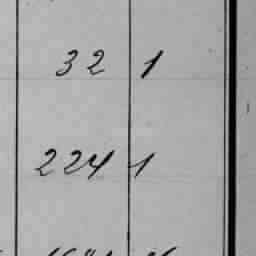 32 1
224 1